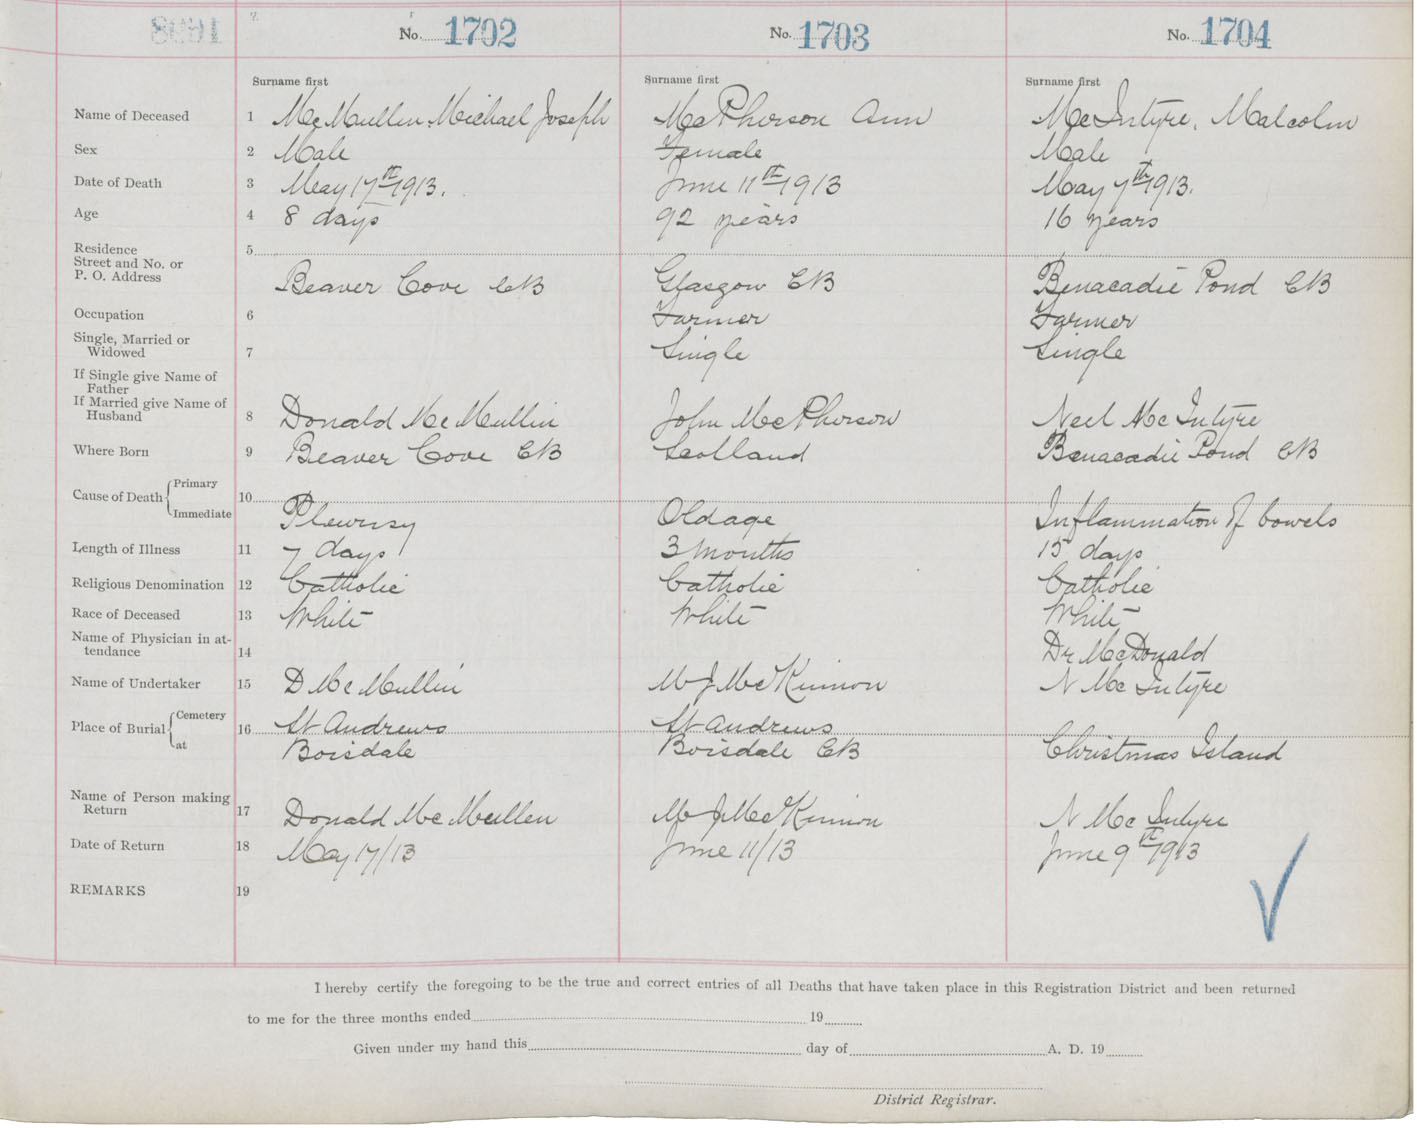 No. 1702 No. 1703 No. 1704
Surname first Surname first Surname first
Name of Deceased 1 McMullin, Michael Joseph McPherson Ann McIntyre, Malcolm
Sex 2 Male Female Male
Date of Death 3 May 17th 1913. June 11th 1913 May 7th 1913.
Age 4 8 days 92 years 16 years
Residence 5
Street and No. or
P. O. Address Beaver Cove CB Glasgow CB Benacadie Pond CB
Occupation 6 Farmer Farmer
Single, Married or
Widowed 7 Single Single
If Single give Name of
Father
If Married give Name of
Husband 8 Donald McMullin John McPherson Neil McIntyre
Where Born 9 Beaver Cove CB Scotland Benacadie Pond CB
Cause of Death Primary 10
Immediate Pleurisy Oldage Inflammation of bowels
Length of Illness 11 7 days 3 months 15 days
Religious Denomination 12 Catholic Catholic Catholic
Race of Deceased 13 White White White
Name of Physician in at-
tendance 14 Dr McDonald
Name of Undertaker 15 D McMullin M J McKinnon N McIntyre
Place of Burial Cemetery 16 St Andrews St Andrews
at Boisdale Boisdale CB Christmas Island
Name of Person making
Return 17 Donald McMullen M J McKinnon N McIntyre
Date of Return 18 May 17/13 June 11/13 June 9th 1913
REMARKS 19
I hereby certify the foregoing to be the true and correct entries of all Deaths that have taken place in this Registration District and been returned
to me for the three months ended 19
Given under my hand this day of A. D. 19
District Registrar.